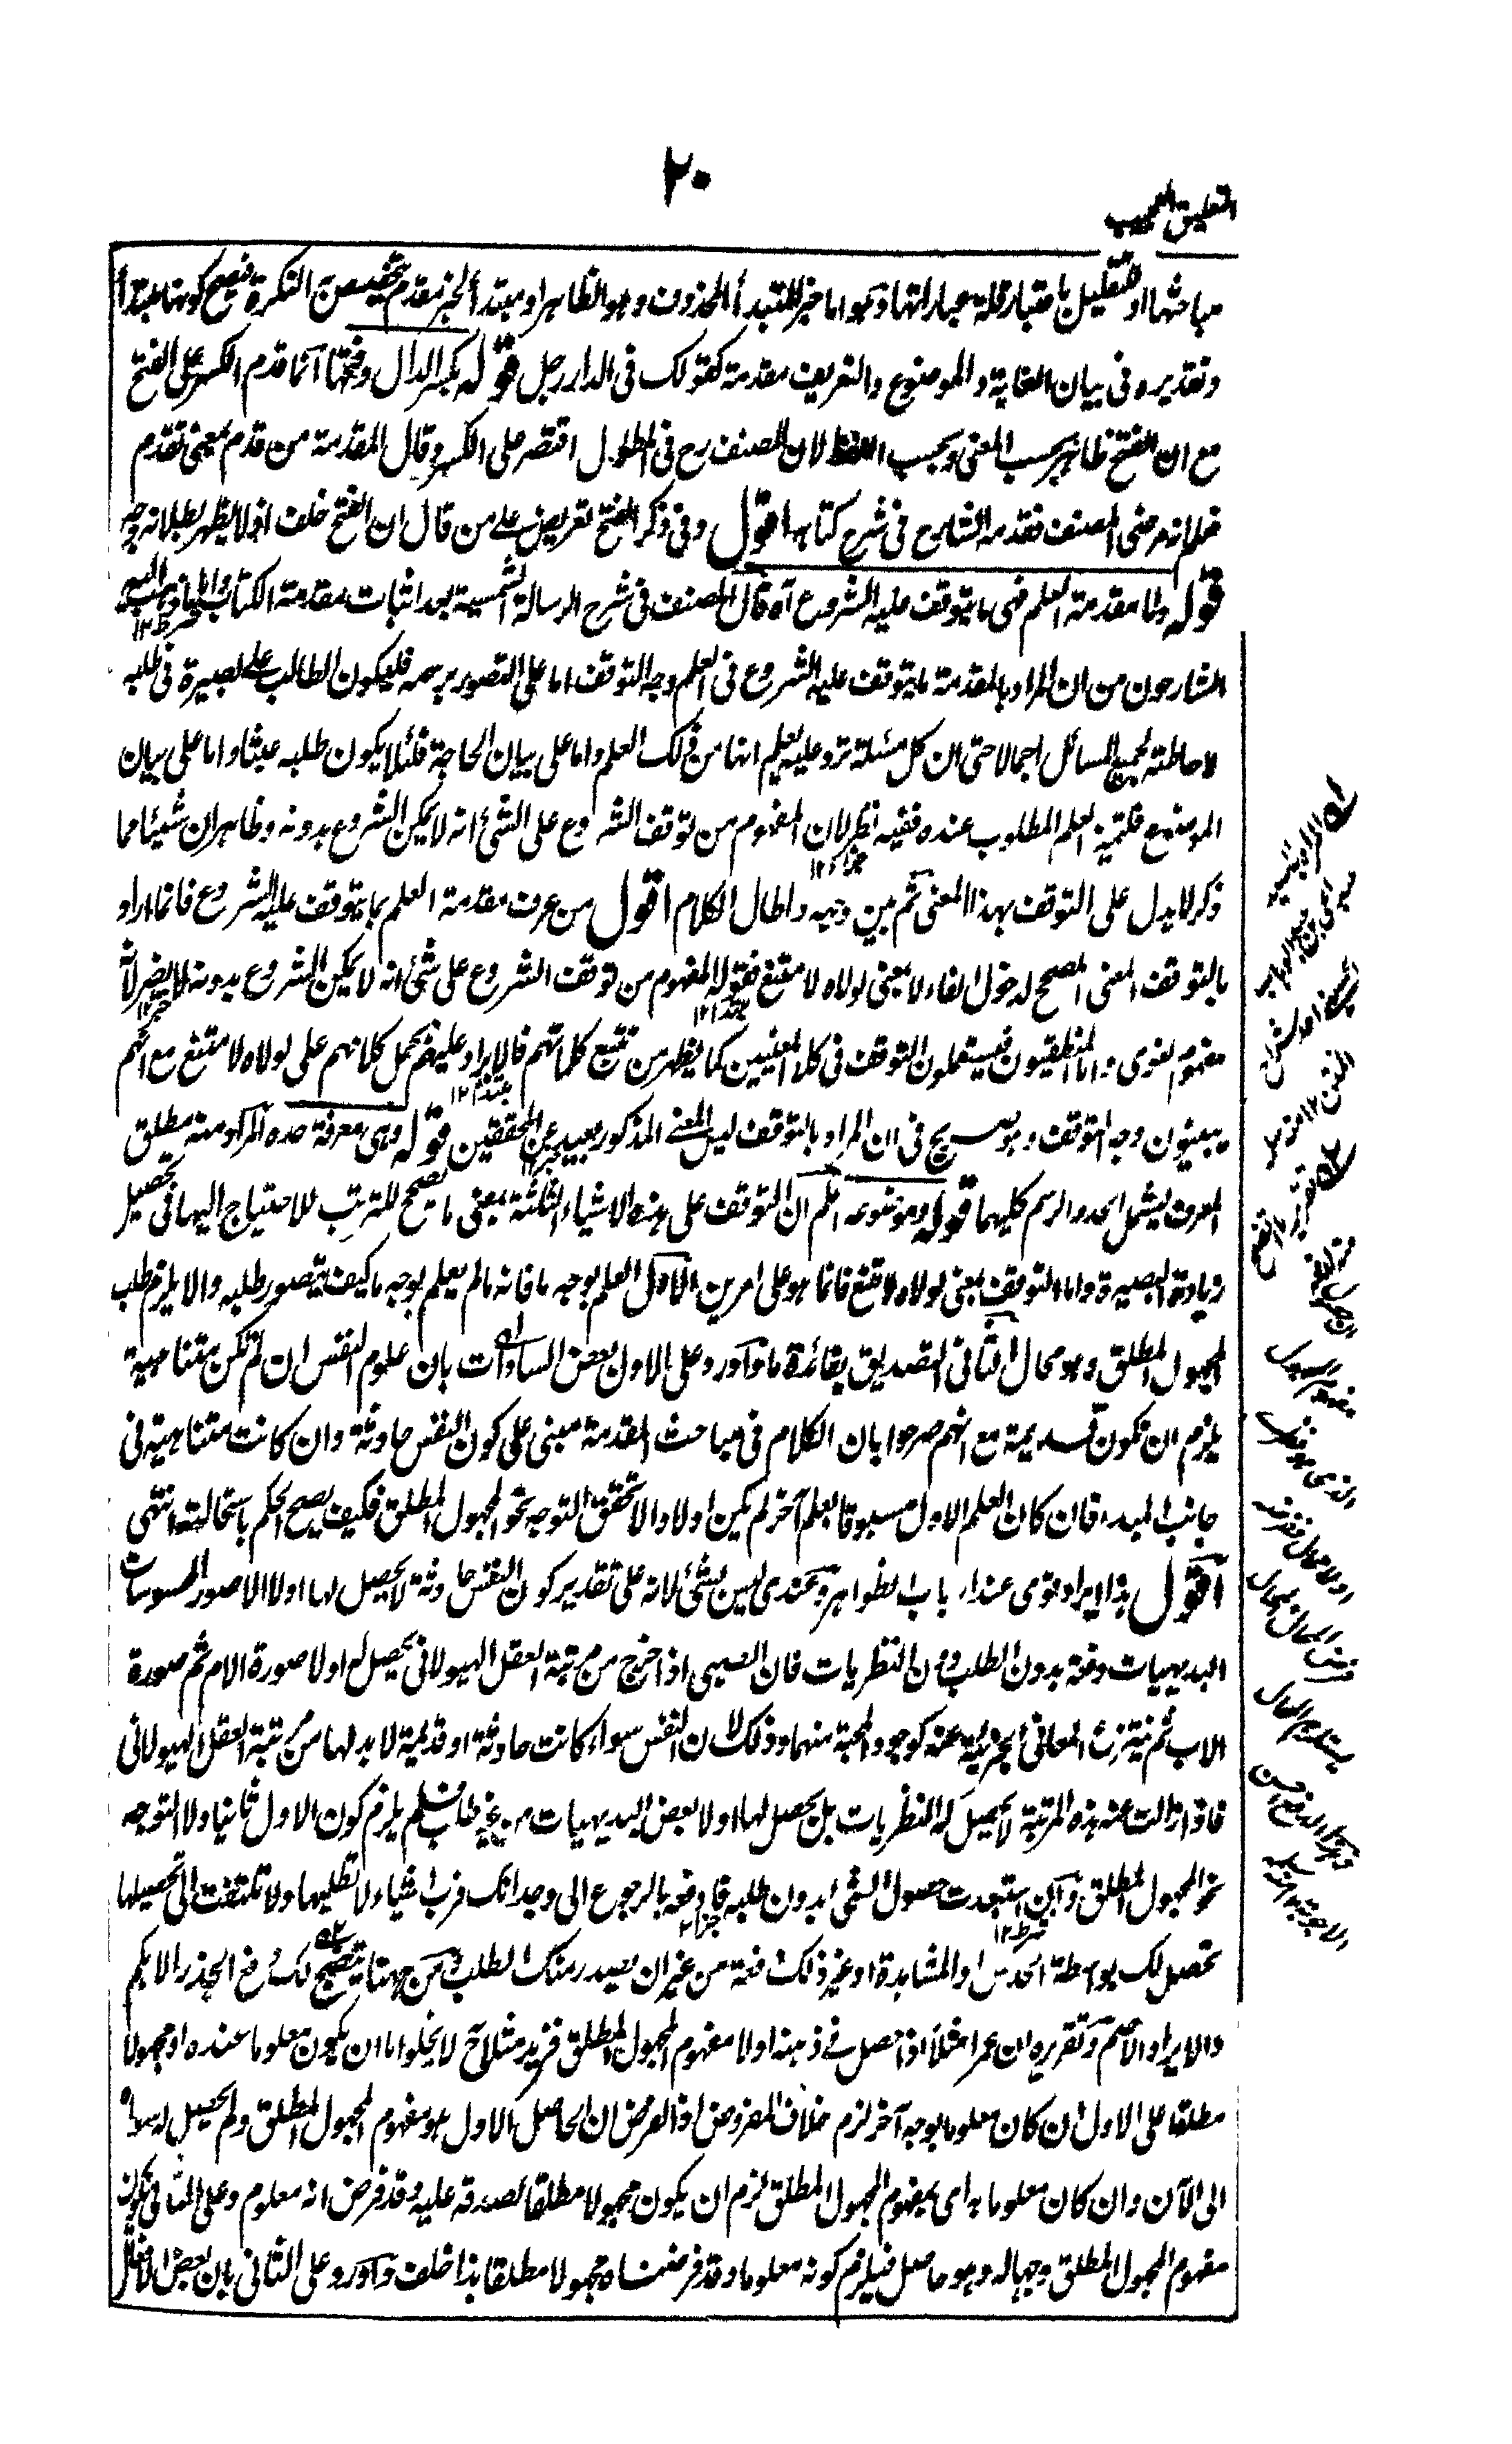 ٢٠
التعليق العجيب
مباحثها او للتقليل باعتبار قلة عباراتها وهو اما خبر للمبتدأ المحذوف وهو الظاهر او مبتدأ لخبر مقدم تخصيص النكرة فيصح كونها مبتدأ
وتقديره في بيان الغاية والموضوع والتعريف مقدمة كقولك في الدار رجل قوله بكسر الدال وفتحها انما قدم الكسر على الفتح
مع ان الفتح ظاهر بحسب المعنى وبحسب اللفظ لان المصنف رح في المطول اقتصر على الكسر وقال المقدمة من قدم بمعنى تقدم
فعلم انه مرضى المصنف فقدمه الشارح في شرح كتابه اقول وفي ذكر الفتح تعريض على من قال ان الفتح خلف اذ لا يظهر بطلانه وجه
قوله واما مقدمة العلم فهى ما يتوقف عليه الشروع آه قال المصنف في شرح الرسالة الشمسية بعد اثبات مقدمة الكتاب واما ما ذهب اليه
الشارحون من ان المراد بالمقدمة ما يتوقف عليه الشروع في العلم وجه التوقف اما على التصور برسمه فليكون الطالب على بصيرة في طلبه
لاحاطته بجميع المسائل اجمالا حتى ان كل مسئلة ترد عليه يعلم انها من ذلك العلم واما على بيان الحاجة فلئلا يكون طلبه عبثا واما على بيان
الموضوع فلتميز العلم المطلوب عنده ففيه نظر لان المفهوم من توقف الشروع على الشئ انه لا يمكن الشروع بدونه وظاهر ان شيئا مما
ذكر لا يدل على التوقف بهذا المعنى ثم بين وجهه واطال الكلام اقول من عرف مقدمة العلم بما يتوقف عليه الشروع فانما اراد
بالتوقف المعنى المصحح لدخول الفاء لا بمعنى لولاه لامتنع فقوله المفهوم من توقف الشروع على شئ انه لا يمكن الشروع بدونه لا يضر لانه
مفهوم لغوى واما المنطقيون فيستعملون التوقف في كلا المعنيين كما يظهر من تتبع كلماتهم فالايراد عليهم بحمل كلامهم على لولاه لامتنع مع انهم
يبينون وجه التوقف وهو صريح في ان المراد بالتوقف ليس المعنى المذكور بعيد عن المحققين قوله وهى معرفة حده المراد منه مطلق
المعرف ليشمل الحد والرسم كليهما قوله وموضوعه اعلم ان التوقف على هذه الاشياء الثلثة بمعنى ما يصحح للترتب للاحتياج اليها في تحصيل
زيادة البصيرة واما التوقف بمعنى لولاه لامتنع فانما هو على امرين الاول العلم بوجه ما فانه ما لم يعلم بوجه ما كيف يتصور طلبه والا يلزم طلب
المجهول المطلق وهو محال الثانى التصديق بفائدة ما واورد على الاول بعض السادات بان علوم النفس ان لم تكن متناهية
يلزم ان تكون قديمة مع انهم صرحوا بان الكلام في مباحث المقدمة مبنى على كون النفس حادثة وان كانت متناهية في
جانب المبدء فان كان العلم الاول مسبوقا بعلم آخر لم يكن اولا والا تحقق التوجه نحو المجهول المطلق فكيف يصح الحكم باستحالته انتهى
اقول هذا الايراد قوى عند ارباب الظواهر وعندى ليس بشئ لانه على تقدير كون النفس حادثة لا يحصل لها اولا الا صور المحسوسات
البديهيات دفعة بدون الطلب دون النظريات فان الصبى اذا خرج من مرتبة العقل الهيولانى يحصل له اولا صورة الام ثم صورة
الاب ثم ينتزع المعانى الجزئية عنه كوجود المحبة منهما وذلك لان النفس سواء كانت حادثة او قديمة لا بد لها من مرتبة العقل الهيولانى
فاذا زالت عنه هذه المرتبة لا يحصل له النظريات بل يحصل لها اولا بعض البديهيات من غير طلب فلم يلزم كون الاول ثانيا ولا التوجه
نحو المجهول المطلق وان استبعدت حصول الشئ بدون طلبه فادفعه بالرجوع الى وجدانك فرب اشياء لا تطلبها ولا تلتفت الى تحصيلها
تحصل لك بواسطة الحدس او المشاهدة او غير ذلك دفعة من غير ان يصدر منك الطلب ومن ههنا يتضح لك دفع الجذر الابكم
والايراد الاصم وتقريره ان عمرا مثلا اذا حصل في ذهنه اولا مفهوم المجهول المطلق فزيد مثلا ح لا يخلو اما ان يكون معلوما عنده او مجهولا
مطلقا على الاول ان كان معلوما بوجه آخر لزم خلاف المفروض اذ الفرض ان الحاصل بالاول هو مفهوم المجهول المطلق ولم يحصل له سواه
الى الآن وان كان معلوما به اى بمفهوم المجهول المطلق لزم ان يكون مجهولا مطلقا لصدقه عليه وقد فرض انه معلوم وعلى الثانى يكون
مفهوم المجهول المطلق وجها له وهو حاصل فيلزم كونه معلوما وقد فرضناه مجهولا مطلقا هذا خلف واورد على الثانى بان بعض الافعال